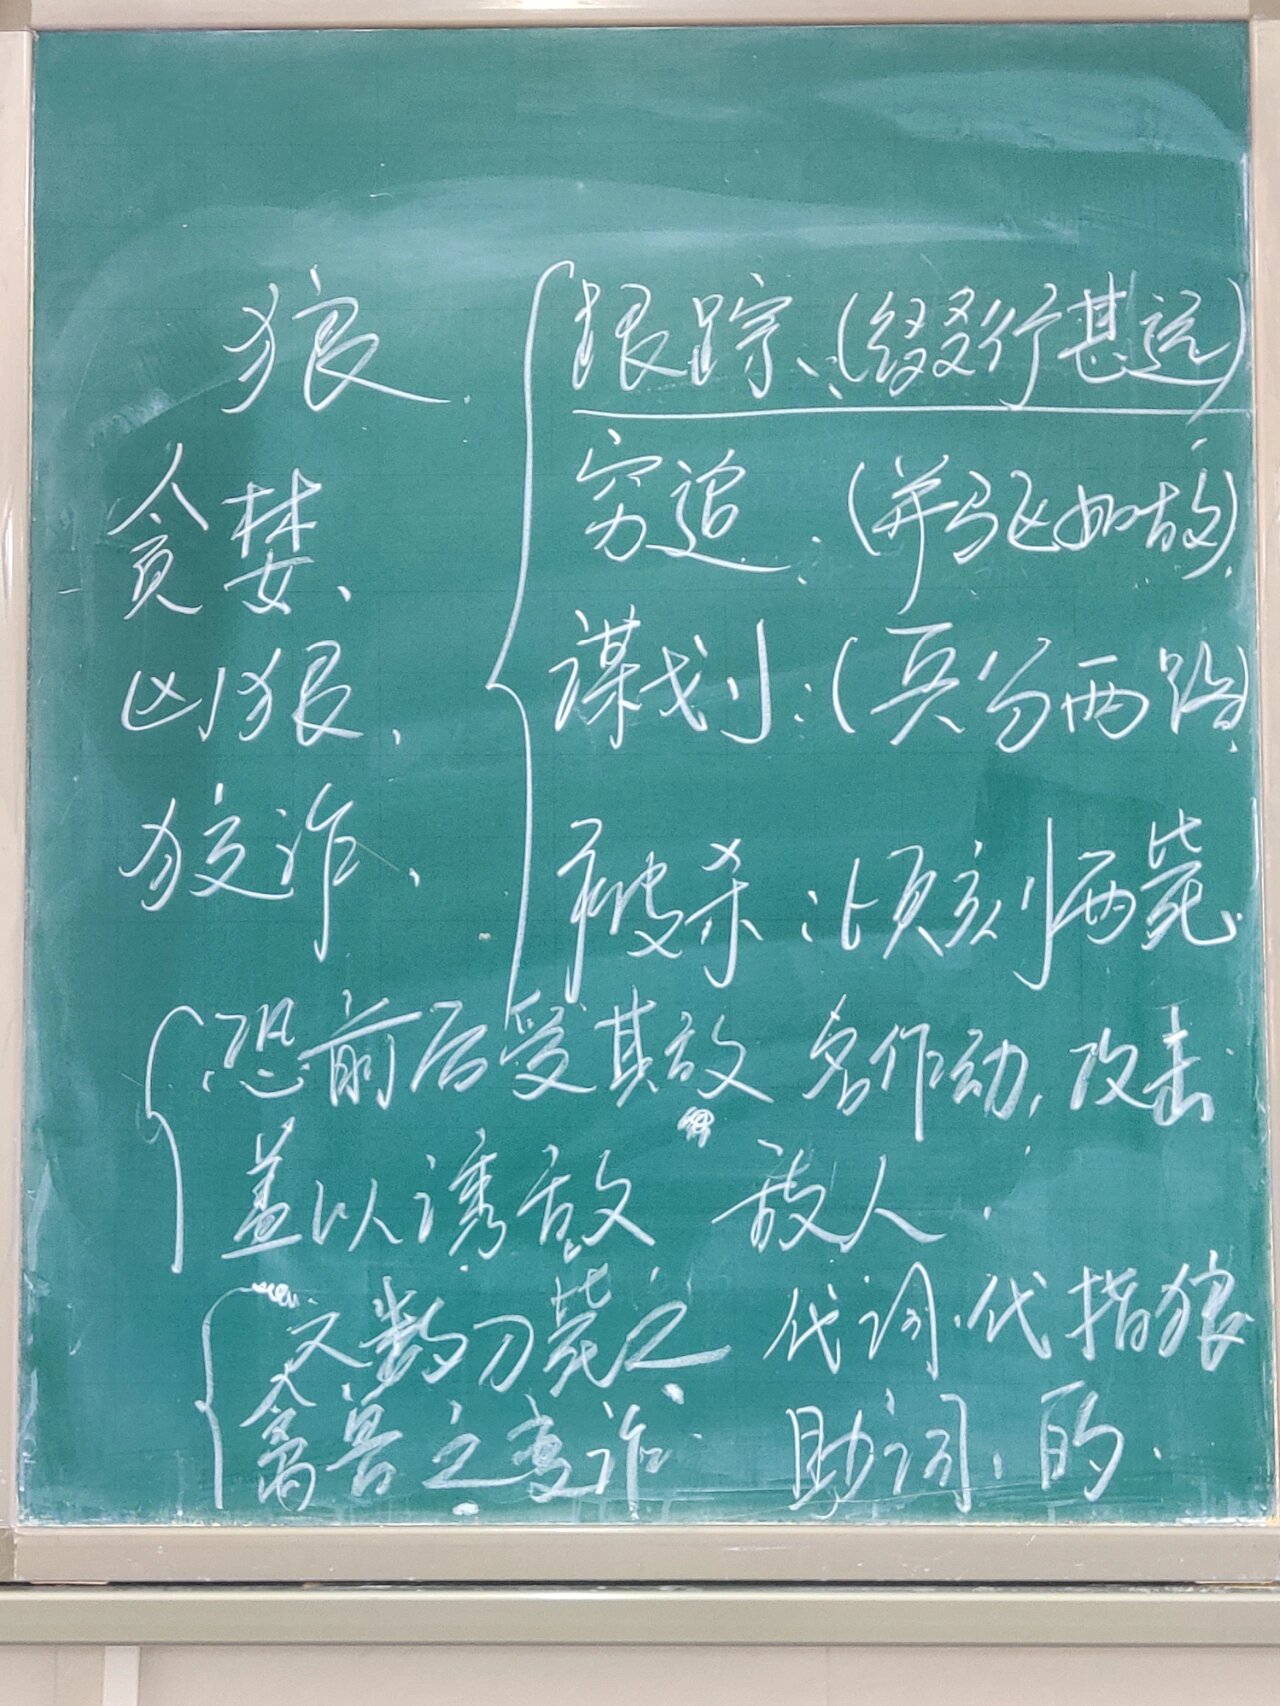 狼
贪婪、
凶狠、
狡诈、
跟踪:(缀行甚远)
穷追:(并驱如故)
谋划:(兵分两路)
被杀:顷刻两毙
恐前后受其敌 名作动,攻击
盖以诱敌 敌人.
又数刀毙之 代词.代指狼
禽兽之变诈 助词,的.